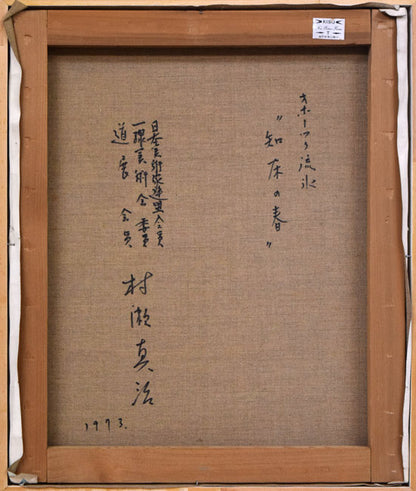 オホーツク流氷
"知床の春"
日本美術家連盟会員
一環美術会委員
道展 会員
村瀬真治
1973.
KISO